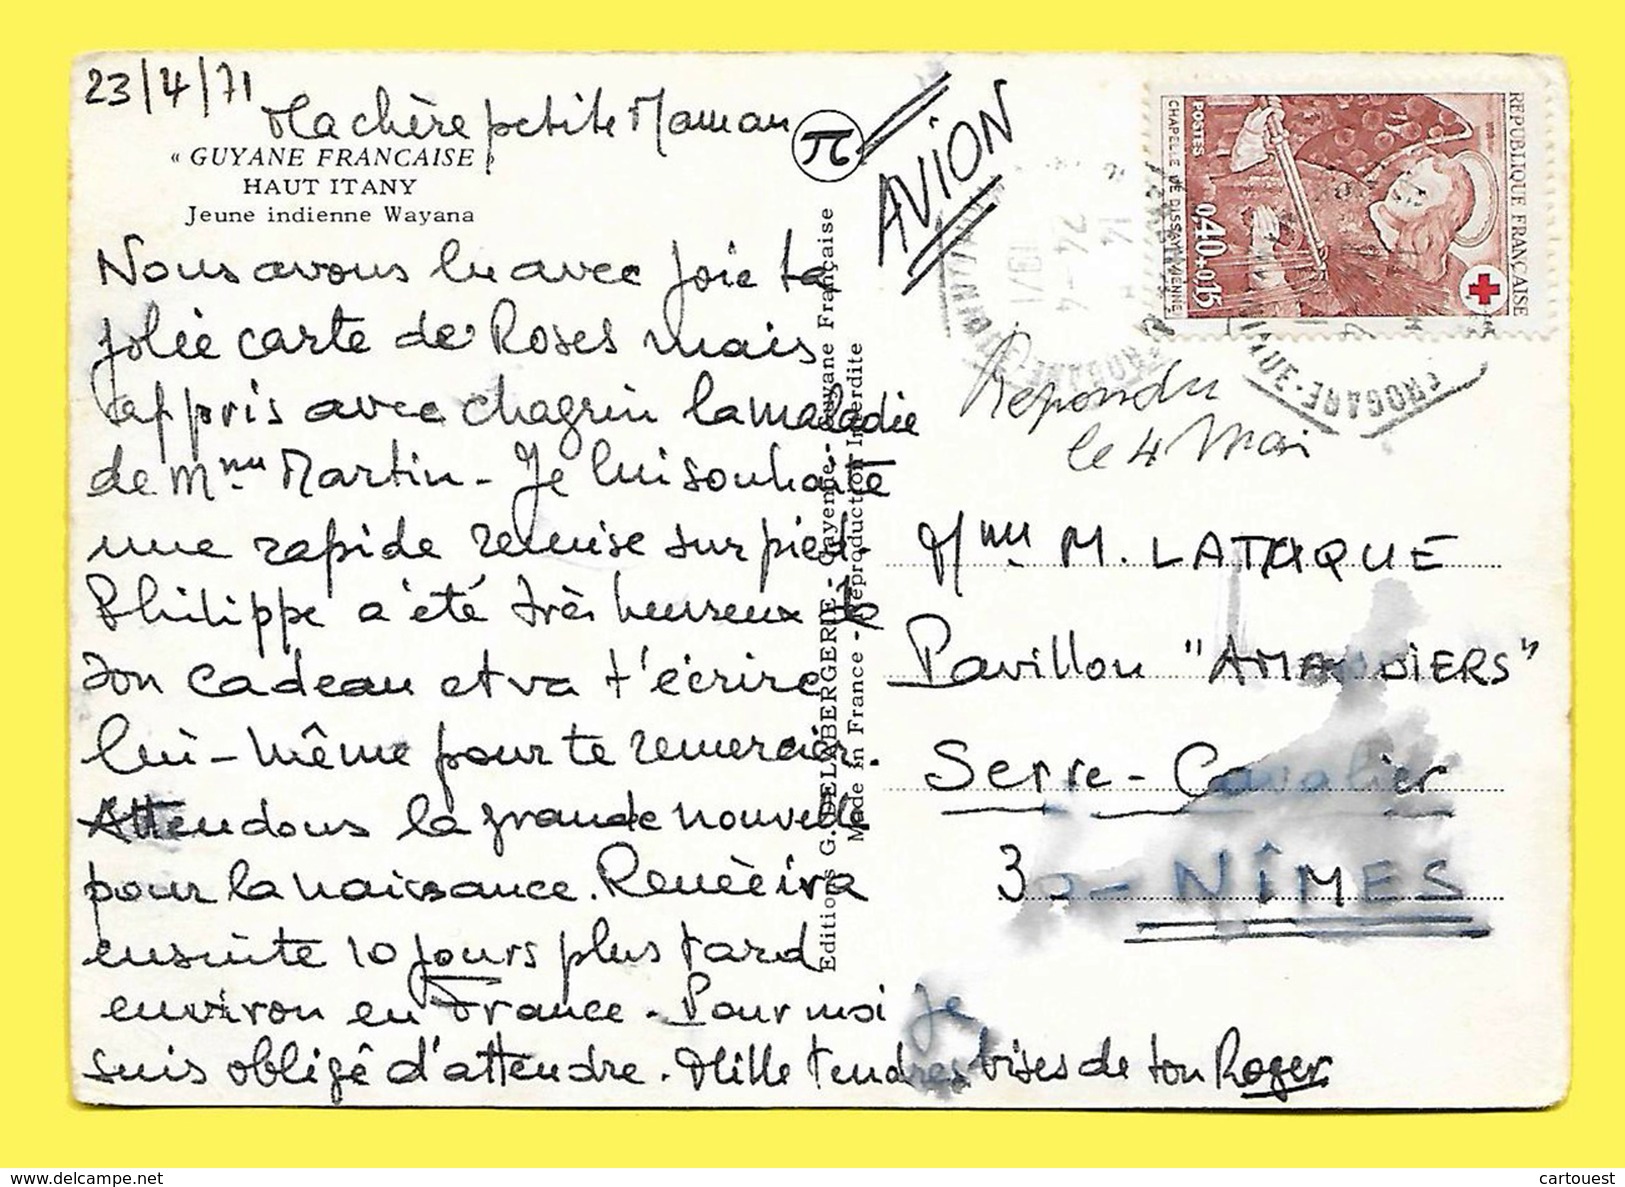 23/4/71
Ma chère petite Maman
« GUYANE FRANCAISE »
HAUT ITANY
Jeune indienne Wayana
Nous avons lu avec joie ta
jolie carte de Roses mais
appris avec chagrin la maladie
de Mme Martin - Je lui souhaite
une rapide remise sur pied.
Philippe a été très heureux de
ton cadeau et va t'écrire
lui-même pour te remercier.
Attendons la grande nouvelle
pour la naissance. Renée ira
ensuite 10 jours plus tard
environ en France - Pour moi je
suis obligé d'attendre. Mille tendres bises de ton Roger
Editions G. DELABERGERIE - Cayenne - Guyane Française
Made in France - Reproduction Interdite
AVION
REPUBLIQUE FRANÇAISE
POSTES
CHAPELLE DE DISSAY (VIENNE)
0,40+0,15
14
24-4
1971
Répondu
le 4 Mai
Mme M. LATAQUE
Pavillon "AMANDIERS"
Serre-Cavalier
30 - NÎMES
cartouest